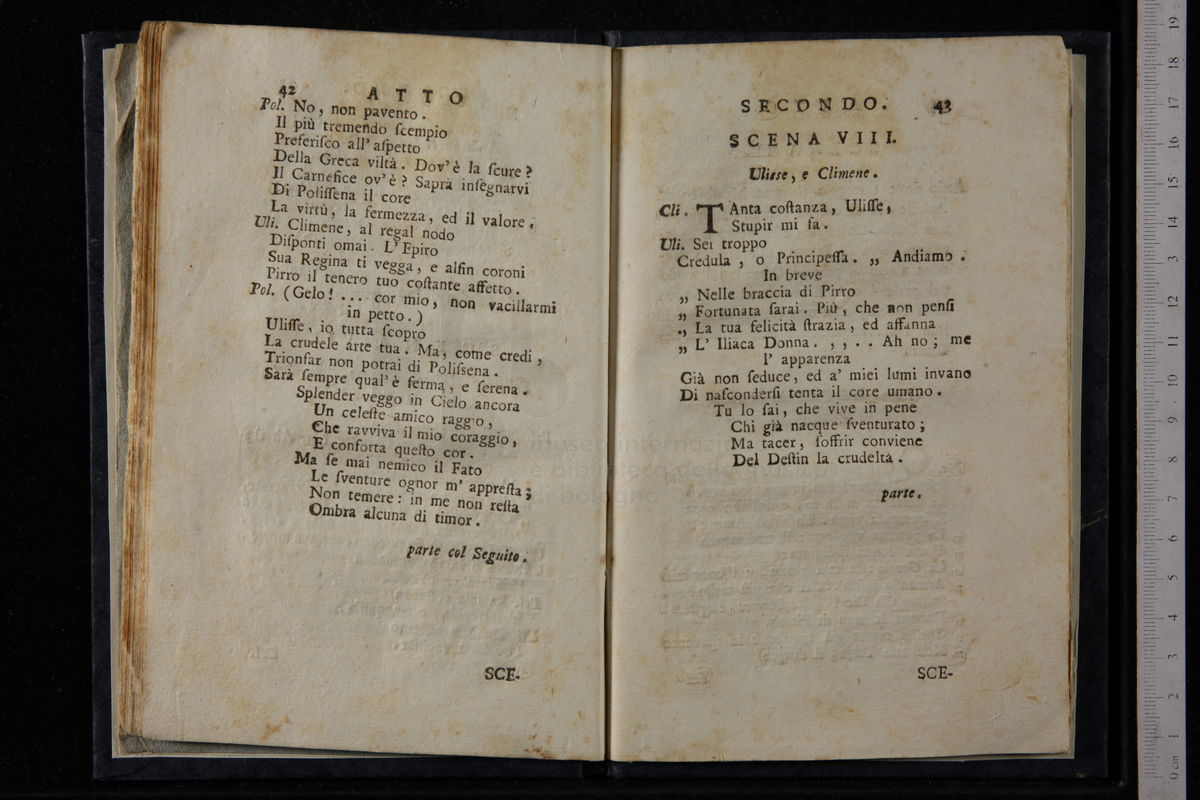 42 ATTO
Pol. No, non pavento.
Il più tremendo ſcempio
Preferiſco all' aſpetto
Della Greca viltà. Dov'è la ſcure?
Il Carnefice ov'è? Saprà inſegnarvi
Di Poliſſena il core
La virtù, la fermezza, ed il valore.
Uli. Climene, al regal nodo
Diſponti omai. L' Epiro
Sua Regina ti vegga, e alfin coroni
Pirro il tenero tuo coſtante affetto.
Pol. (Gelo! ... cor mio, non vacillarmi
in petto.)
Uliſſe, io tutta ſcopro
La crudele arte tua. Ma, come credi,
Trionfar non potrai di Poliſsena.
Sarà ſempre qual'è ferma, e ſerena.
Splender veggo in Cielo ancora
Un celeſte amico raggio,
Che ravviva il mio coraggio,
E conforta queſto cor.
Ma ſe mai nemico il Fato
Le ſventure ognor m' appreſta;
Non temere: in me non reſta
Ombra alcuna di timor.
parte col Seguito.
SCE-
SECONDO. 43
SCENA VIII.
Ulisse, e Climene.
Cli. TAnta coſtanza, Uliſſe,
Stupir mi fa.
Uli. Sei troppo
Credula, o Principeſſa. „ Andiamo.
In breve
„ Nelle braccia di Pirro
„ Fortunata ſarai. Più, che non penſi
„ La tua felicità ſtrazia, ed affanna
„ L' Iliaca Donna. , , . . Ah no; me
l' apparenza
Già non ſeduce, ed a' miei lumi invano
Di naſconderſi tenta il core umano.
Tu lo ſai, che vive in pene
Chi già nacque ſventurato;
Ma tacer, ſoffrir conviene
Del Deſtin la crudeltà.
parte.
SCE-